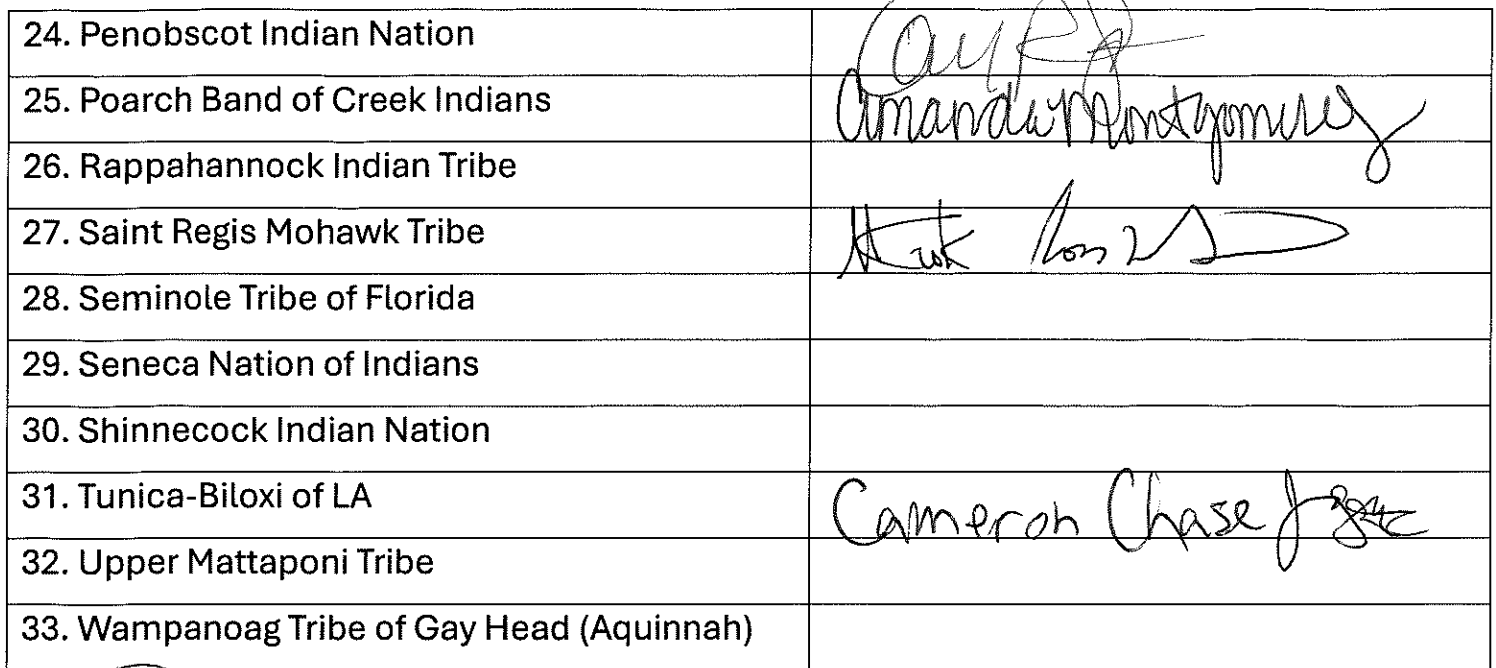 24. Penobscot Indian Nation
25. Poarch Band of Creek Indians Amanda Montgomery
26. Rappahannock Indian Tribe
27. Saint Regis Mohawk Tribe
28. Seminole Tribe of Florida
29. Seneca Nation of Indians
30. Shinnecock Indian Nation
31. Tunica-Biloxi of LA Cameron Chase
32. Upper Mattaponi Tribe
33. Wampanoag Tribe of Gay Head (Aquinnah)